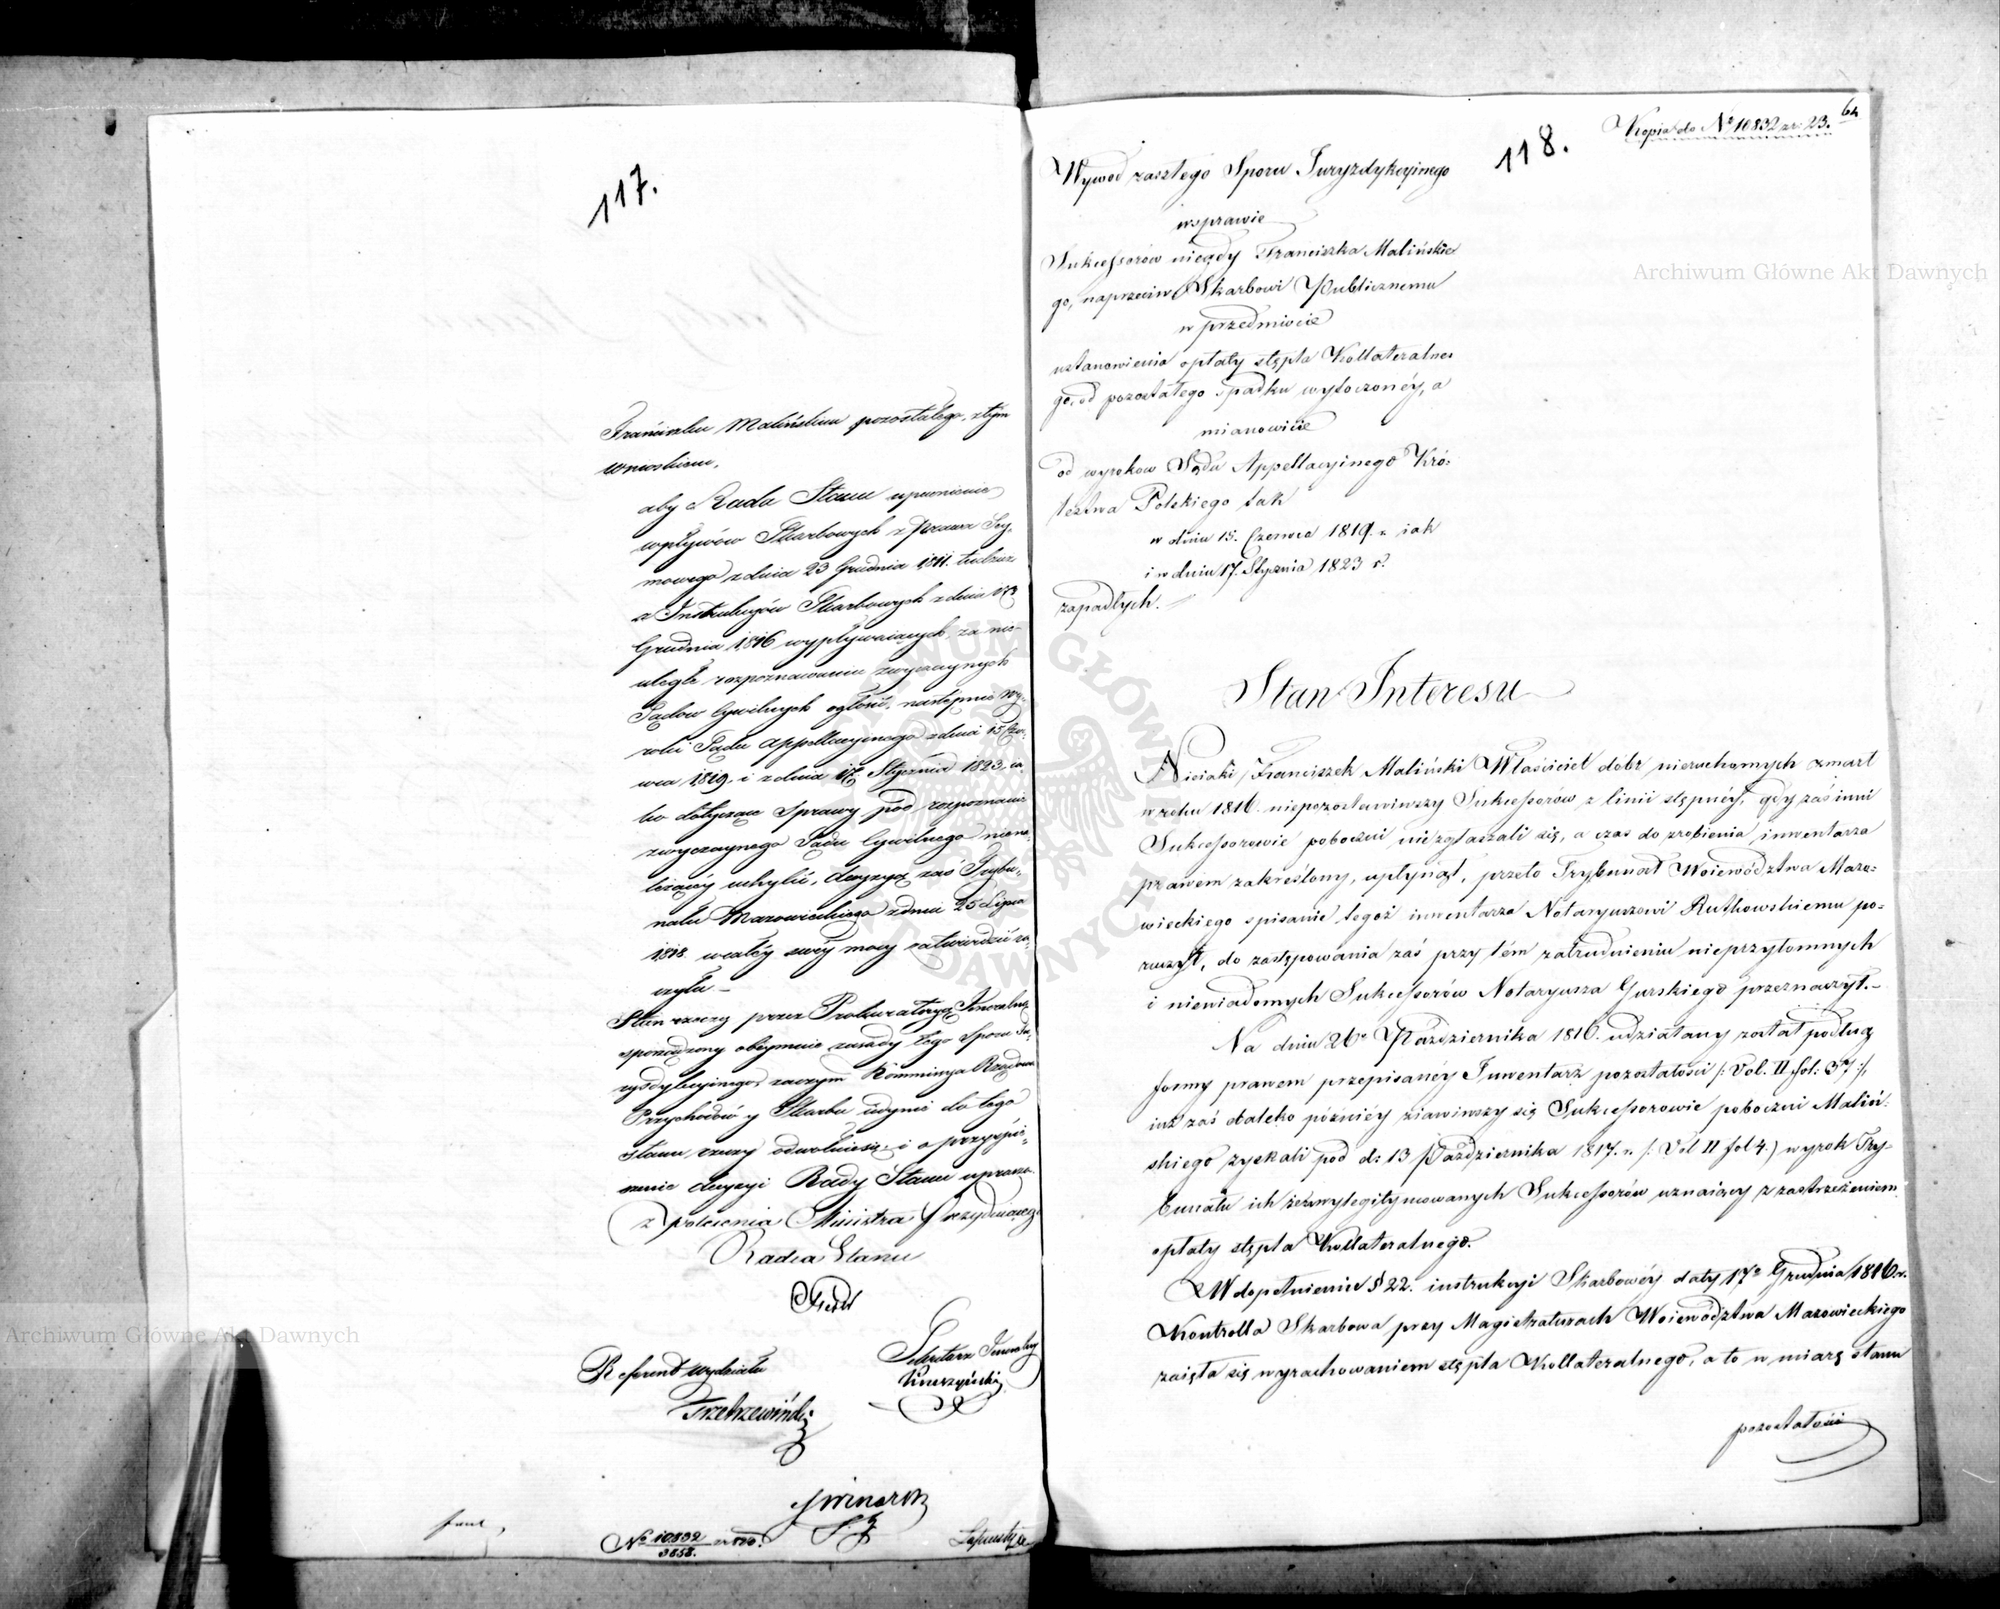 117.
Franciszku Malińskim pozostałego, z tym
wnioskiem,
aby Rada Stanu upewnienie
wpływów Skarbowych z Prawa Sey-
mowego z dnia 23 Grudnia 1811. tudzież
z Instrukcyów Skarbowych z dnia 17
Grudnia 1816 wypływaiących, za nie-
uległe rozpoznawaniu zwyczaynych
Sądow Cywilnych ogłosić, następnie Wy-
roki Sądu Appellacyinego z dnia 15 Czer-
wca 1819, i z dnia 17 Stycznia 1823, ia-
ko dotyczące Sprawy pod rozpoznanie
zwyczaynego Sądu Cywilnego niena-
leżącéy uchylić, decyzyą zaś Trybu-
nału Mazowieckiego z dnia 25 Lipca
1818. w całéy swéy mocy zatwierdzić ra-
czyła –
Stan rzeczy przez Prokuratoryą Jeneralną
sporządzony obeymuie zasady tego Sporu Ju-
rysdykcyinego, zaczym Kommissya Rządowa
Przychodów y Skarbu udaiąc do tego
stanu rzeczy odwołuiesię, i o przyspie-
szenie decyzyi Rady Stanu uprasza.
z polecenia Ministra Prezyduiącego
Radca Stanu
Referent Wydziału
Sekretarz Jeneralny
Trzetrzewiński
No 10832
3858.
Kopia do No 10832 ar: 23.
64
118.
Wywod zaszłego Sporu Juryzdykcyinego
w sprawie
Sukcessorów niegdy Franciszka Malińskie
go, naprzeciw Skarbowi Publicznemu
w przedmiocie
ustanowienia opłaty stępla Kollateralne-
go, od pozostałego spadku wytoczonéy, a
mianowicie
od wyrokow Sądu Appellacyinego Kró-
lestwa Polskiego tak
w dniu 15. Czerwca 1819. r. iak
i w dniu 17. Stycznia 1823 r.
zapadłych. –
Stan Interesu
Nieiaki Franciszek Maliński Właściciel dóbr nieruchomych zmarł
w roku 1816. niepozostawiwszy Sukcessorów z linii stępnéy, gdy zaś inni
Sukcessorowie poboczni niezgłaszali się, a czas do zrobienia inwentarza
prawem zakreślony, upłynął, przeto Trybunał Woiewództwa Mazo-
wieckiego spisanie tegoż inwentarza Notaryuszowi Rutkowskiemu po-
ruczył, do zastępowania zaś przy tém zatrudnieniu nieprzytomnych
i niewiadomych Sukcessorów Notaryusza Gurskiego przeznaczył. –
Na dniu 26o Października 1816. udziałany został podług
formy prawem przepisanéy Inwentarz pozostałości /: Vol. II fol: 37:/.
iuż zaś daleko późniéy ziawiwszy się Sukcessorowie poboczni Maliń-
skiego zyskali pod d: 13 Października 1817. r. /: Vol II fol 4.) wyrok Try-
bunału ich za wylegitymowanych Sukcessorów uznaiący z zastrzeżeniem
opłaty stępla Kollateralnego.
W dopełnieniu § 22. instrukcyi Skarbowéy daty 17o Grudnia 1816 r.
Kontrolla Skarbowa przy Magistraturach Woiewództwa Mazowieckiego
zaięła się wyrachowaniem stępla Kollateralnego, a to w miarę stanu
pozostałości
Archiwum Główne Akt Dawnych
Archiwum Główne Akt Dawnych
ARCHIWUM GŁÓWNE AKT DAWNYCH